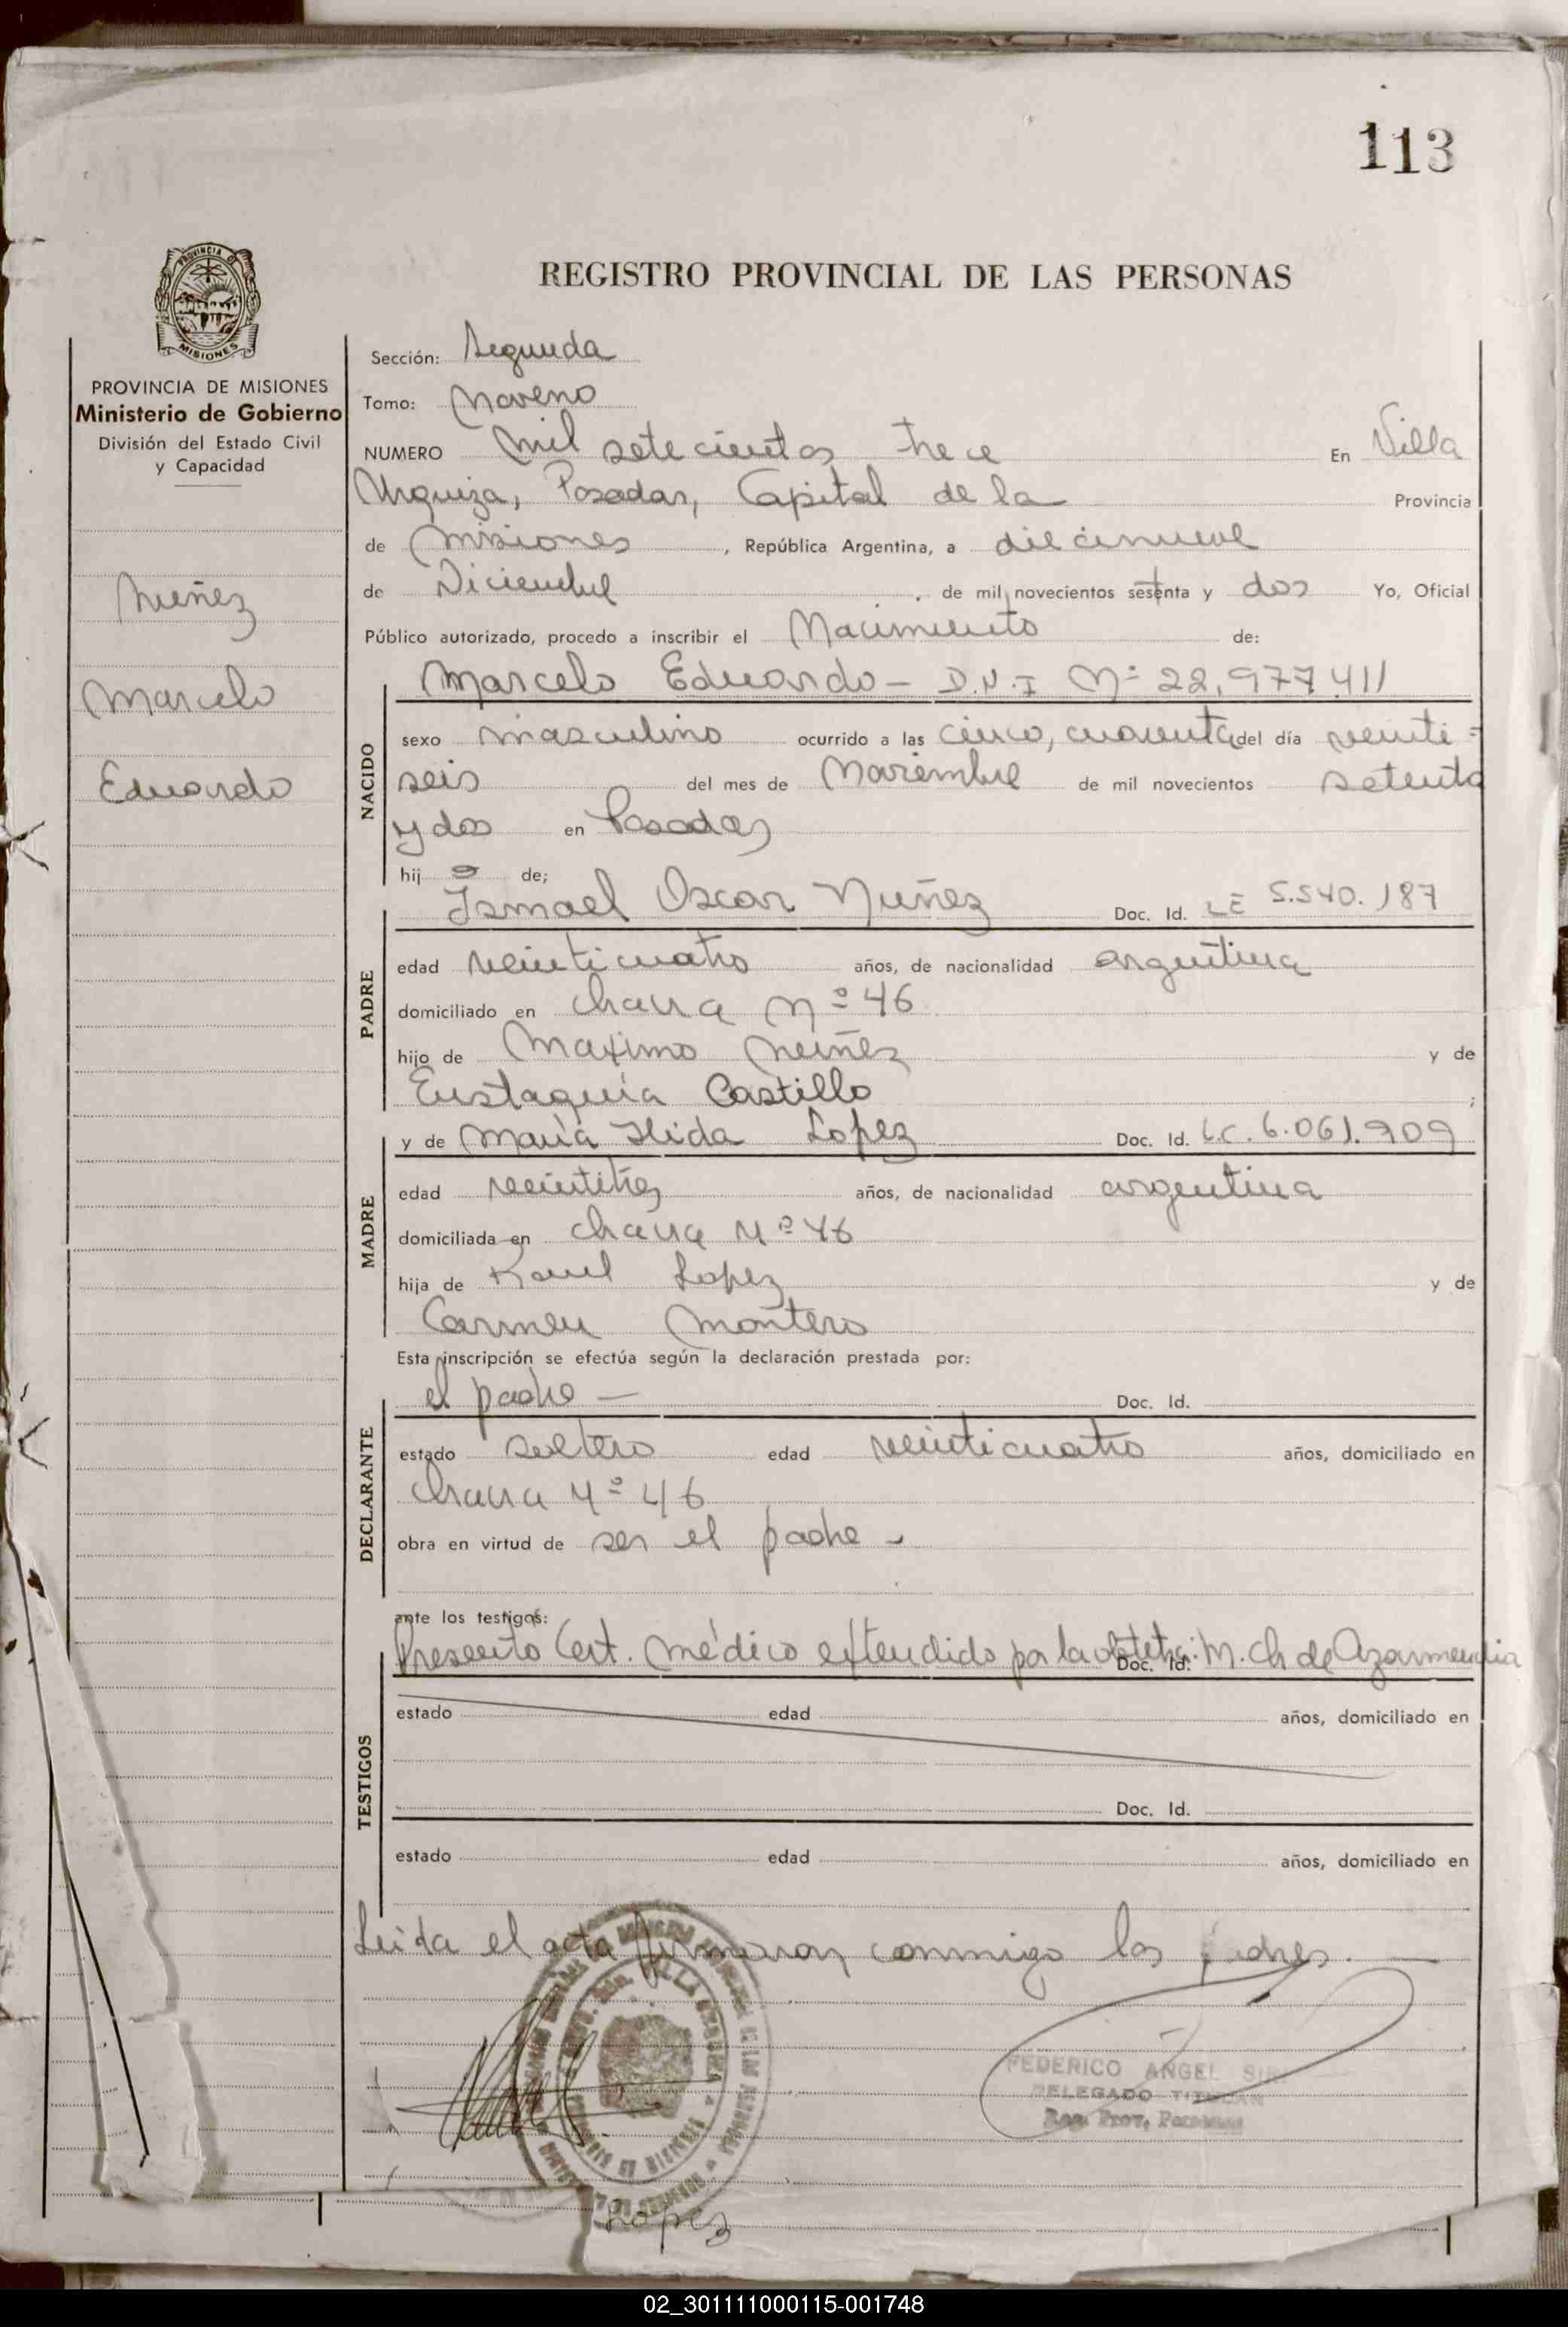 113
REGISTRO PROVINCIAL DE LAS PERSONAS
PROVINCIA DE MISIONES
PROVINCIA DE MISIONES
Ministerio de Gobierno
División del Estado Civil
y Capacidad
Nuñez
Marcelo
Eduardo
Sección: Segunda
Tomo: Noveno
NUMERO mil setecientos trece En Villa
Urquiza, Posadas, Capital de la Provincia
de Misiones, República Argentina, a diecinueve
de Diciembre, de mil novecientos setenta y dos Yo, Oficial
Público autorizado, procedo a inscribir el Nacimiento de:
Marcelo Eduardo - D.N.I Nº 22,977.411
NACIDO
sexo masculino ocurrido a las cinco, cuarenta del día veinti=
seis del mes de Noviembre de mil novecientos setenta
y dos en Posadas
hijo de;
PADRE
Ismael Oscar Nuñez Doc. Id. LE 5.540.187
edad veinticuatro años, de nacionalidad argentina
domiciliado en chacra Nº 46
hijo de Maximo Nuñez y de
Eustaquia Castillo;
MADRE
y de María Ilida Lopez Doc. Id. L.C. 6.061.909
edad veintitres años, de nacionalidad argentina
domiciliada en chacra Nº 46
hija de Raul Lopez y de
Carmen Montero
Esta inscripción se efectúa según la declaración prestada por:
DECLARANTE
el padre - Doc. Id.
estado soltero edad veinticuatro años, domiciliado en
chacra Nº 46
obra en virtud de ser el padre -
ante los testigos:
TESTIGOS
Presento Cert. médico extendido por la obstetra: M. Ch de Azarmendia
Doc. Id.
estado edad años, domiciliado en
Doc. Id.
estado edad años, domiciliado en
Leida el acta firmaron conmigo los padres.
FEDERICO ANGEL
DELEGADO TITULAR
Reg. Prov. Personas
VILLA URQUIZA
Lopez
02_301111000115-001748